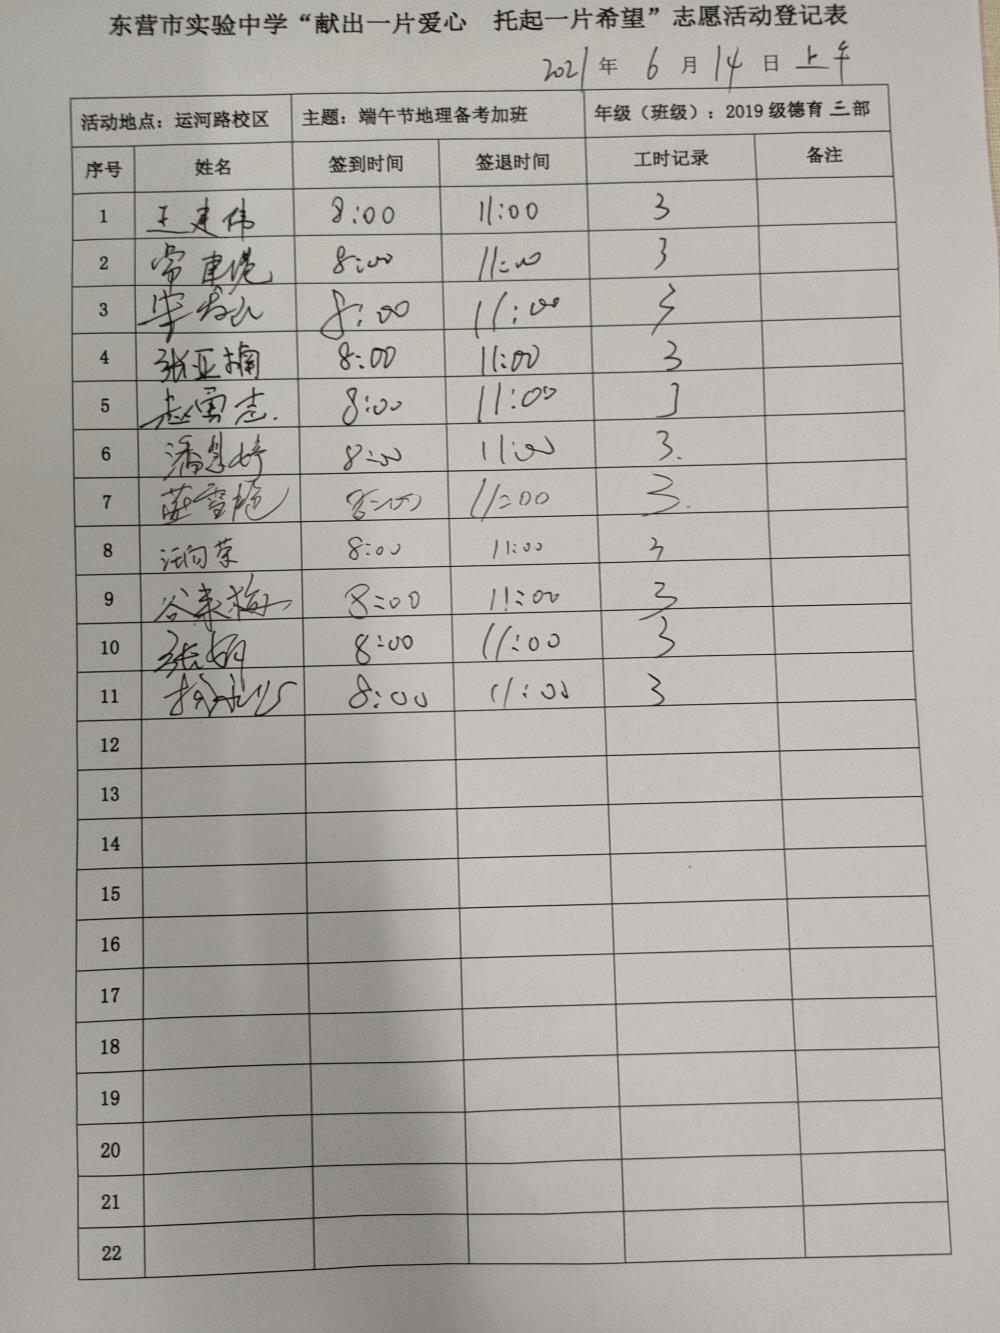 东营市实验中学“献出一片爱心 托起一片希望”志愿活动登记表
2021年 6月14日上午
活动地点：运河路校区 主题：端午节地理备考加班 年级（班级）：2019级德育三部
序号 姓名 签到时间 签退时间 工时记录 备注
1 王建伟 8:00 11:00 3
2 8:00 11:00 3
3 8:00 11:00 3
4 张亚楠 8:00 11:00 3
5 8:00 11:00 3
6 潘 婷 8:00 11:00 3.
7 薛雪艳 8:00 11:00 3.
8 汪向荣 8:00 11:00 3
9 谷来梅 8:00 11:00 3
10 张娟 8:00 11:00 3
11 8:00 11:00 3
12
13
14
15
16
17
18
19
20
21
22